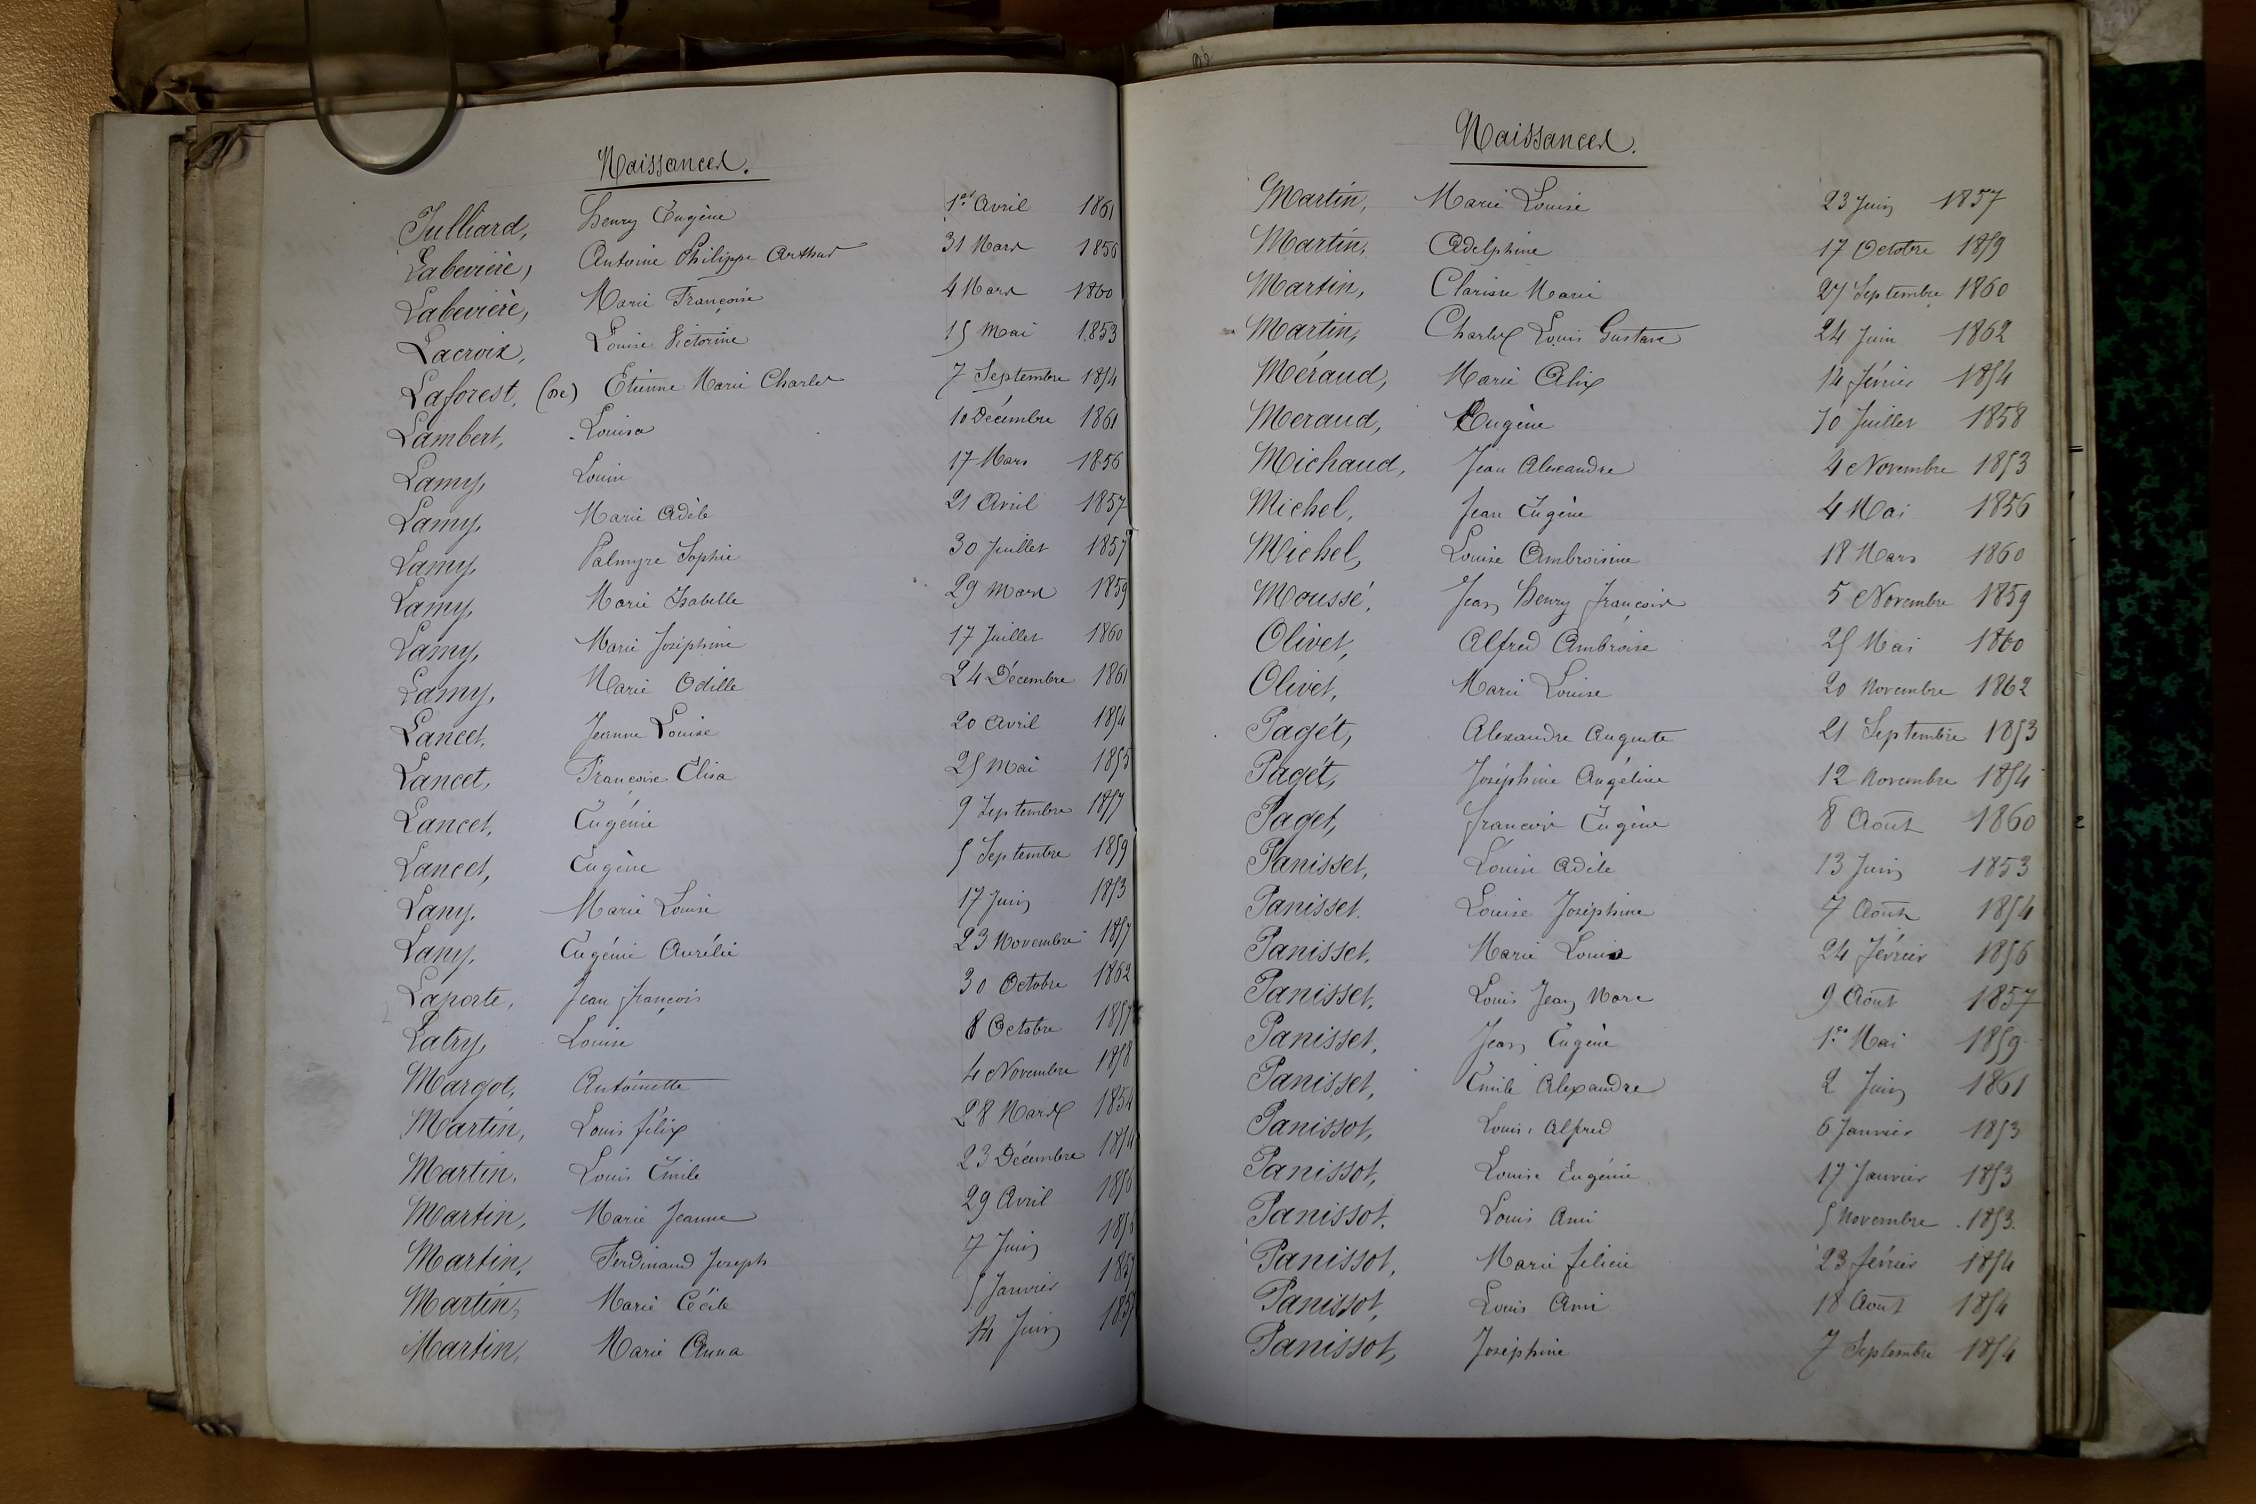 Naissances.
Julliard, Henry Eugène 1er Avril 1861
Labevière, Antoine Philippe Arthur 31 Mars 1856
Labevière, Marie Françoise 4 Mars 1860
Lacroix, Louise Victorine 15 Mai 1853
Laforest, (De) Etienne Marie Charles 7 Septembre 1854
Lambert, Louisa 10 Décembre 1861
Lamy, Louis 17 Mars 1856
Lamy, Marie Adèle 21 Avril 1857
Lamy, Palmyre Sophie 30 Juillet 1857
Lamy, Marie Isabelle 29 Mars 1859
Lamy, Marie Joséphine 17 Juillet 1860
Lamy, Marie Odille 24 Décembre 1861
Lancet, Jeanne Louise 20 Avril 1854
Lancet, Françoise Elisa 25 Mai 1855
Lancet, Eugénie 9 Septembre 1857
Lancet, Eugène 5 Septembre 1859
Lany, Marie Louise 17 Juin 1853
Lany, Eugénie Aurélie 23 Novembre 1857
Laporte, Jean François 30 Octobre 1862
Latry, Louise 8 Octobre 1857
Margot, Antoinette 4 Novembre 1858
Martin, Louis félix 28 Mars 1854
Martin, Louis Emile 23 Décembre 1854
Martin, Marie Jeanne 29 Avril 1856
Martin, Ferdinand Joseph 7 Juin
Martin, Marie Cécile 5 Janvier 1857
Martin, Marie Anna 14 Juin 1857
Naissances.
Martin, Marie Louise 23 Juin 1857
Martin, Adelphine 17 Octobre 1859
Martin, Clarisse Marie 27 Septembre 1860
Martin, Charles Louis Gustave 24 Juin 1862
Méraud, Marie Alix 14 février 1854
Meraud, Eugène 10 Juillet 1858
Michaud, Jean Alexandre 4 Novembre 1853
Michel, Jean Eugène 4 Mai 1856
Michel, Louise Ambroisine 18 Mars 1860
Moussé, Jean Henry François 5 Novembre 1859
Olivet, Alfred Ambroise 25 Mai 1860
Olivet, Marie Louise 20 Novembre 1862
Pagét, Alexandre Auguste 21 Septembre 1853
Pagét, Joséphine Angéline 12 Novembre 1854
Paget, François Eugène 8 Août 1860
Panisset, Louise Adèle 13 Juin 1853
Panisset, Louise Joséphine 7 Août 1854
Panisset, Marie Louisa 24 février 1856
Panisset, Louis Jean Marc 9 Août 1857
Panisset, Jean Eugène 1er Mai 1859
Panisset, Emile Alexandre 2 Juin 1861
Panissot, Louis Alfred 6 Janvier 1853
Panissot, Louise Eugénie 17 Janvier 1853
Panissot, Louis Ami 5 Novembre 1853
Panissot, Marie félicie 23 février 1854
Panissot, Louis Ami 18 Août 1854
Panissot, Joséphine 7 Septembre 1854